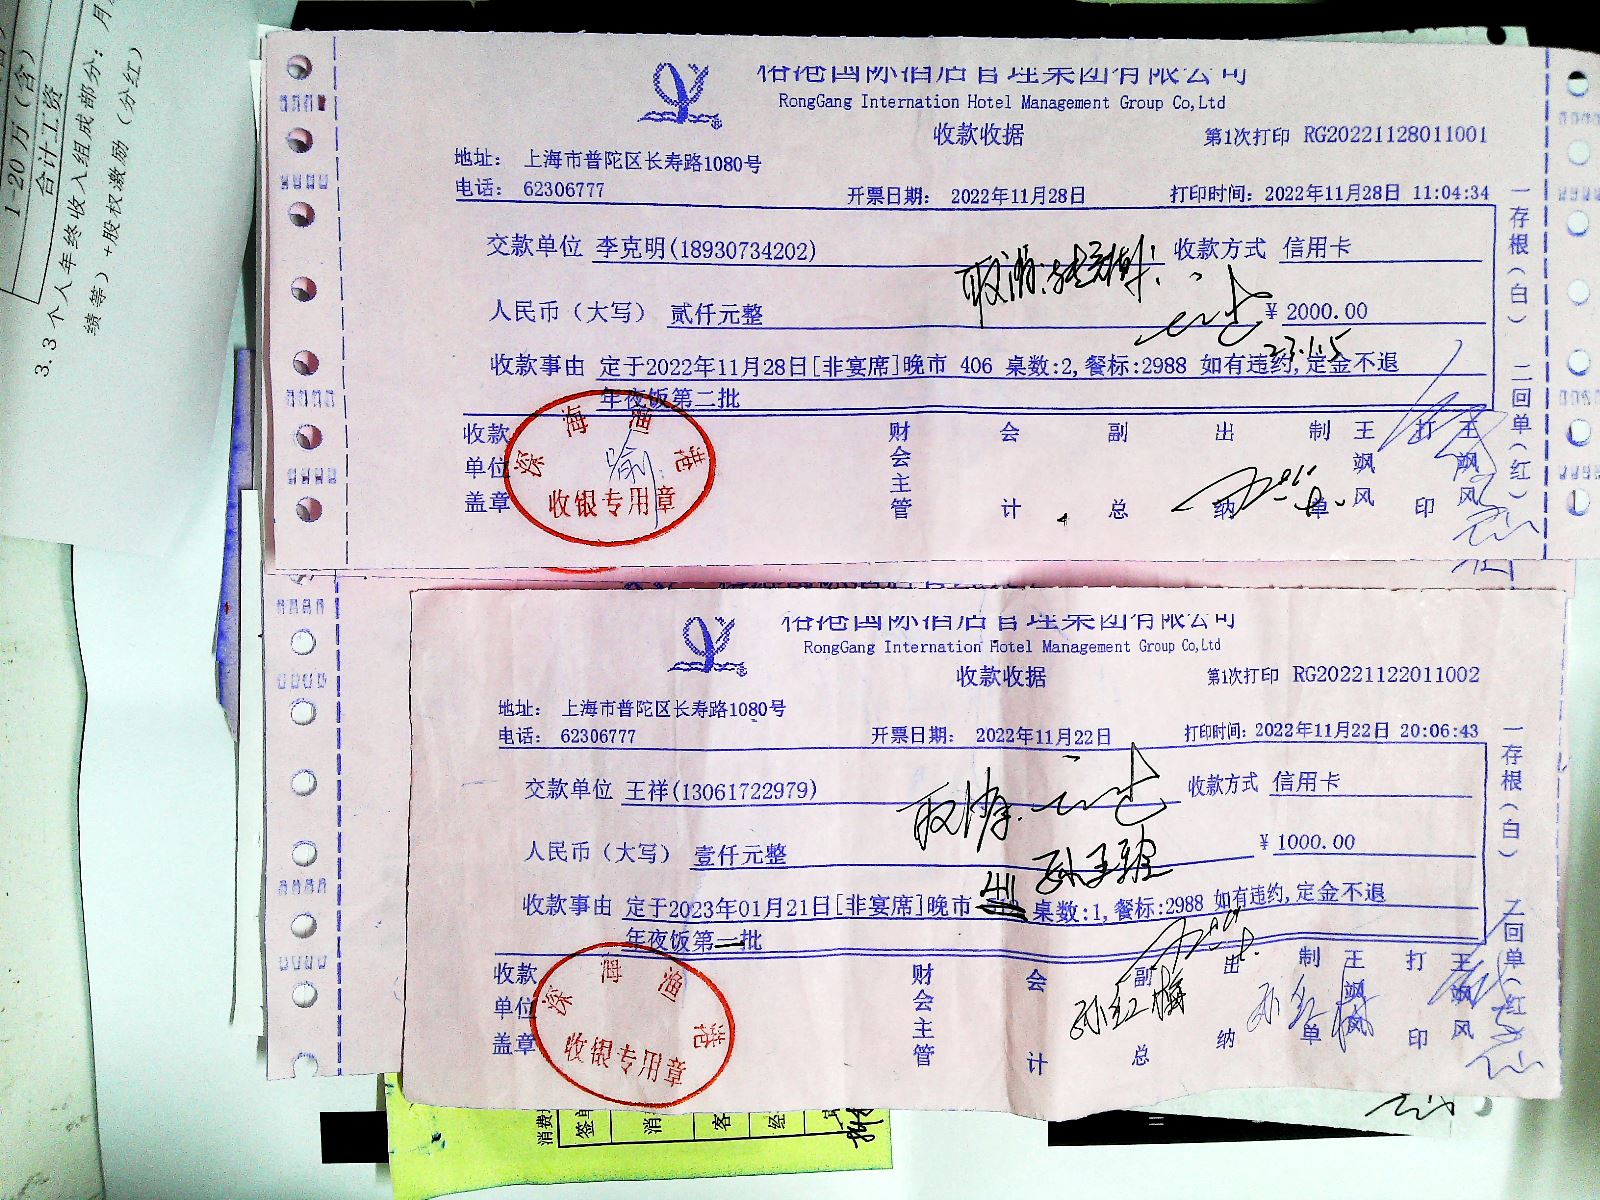 1-20万(含)
合计工资
3.3 个人年终收入组成部分:月
绩等)+股权激励(分红)
裕港国际酒店管理集团有限公司
RongGang Internation Hotel Management Group Co,Ltd
收款收据
第1次打印 RG20221128011001
地址: 上海市普陀区长寿路1080号
电话: 62306777
开票日期: 2022年11月28日
打印时间: 2022年11月28日 11:04:34
交款单位 李克明(18930734202)
收款方式 信用卡
取消
人民币(大写) 贰仟元整
¥ 2000.00
23.1.5
收款事由 定于2022年11月28日[非宴席]晚市 406 桌数:2,餐标:2988 如有违约,定金不退
年夜饭第二批
收款单位盖章
深海渔港
收银专用章
财会主管
会计
副总
出纳
制单
王飒风
打印
王飒风
一存根(白) 二回单(红)
裕港国际酒店管理集团有限公司
RongGang Internation Hotel Management Group Co,Ltd
收款收据
第1次打印 RG20221122011002
地址: 上海市普陀区长寿路1080号
电话: 62306777
开票日期: 2022年11月22日
打印时间: 2022年11月22日 20:06:43
交款单位 王祥(13061722979)
收款方式 信用卡
取消
人民币(大写) 壹仟元整
¥ 1000.00
411
收款事由 定于2023年01月21日[非宴席]晚市 桌数:1,餐标:2988 如有违约,定金不退
年夜饭第一批
收款单位盖章
深海渔港
收银专用章
财会主管
会计
副总
出纳
制单
王飒风
打印
王飒风
孙红梅
一存根(白) 二回单(红)
消费
签单
消
客
经